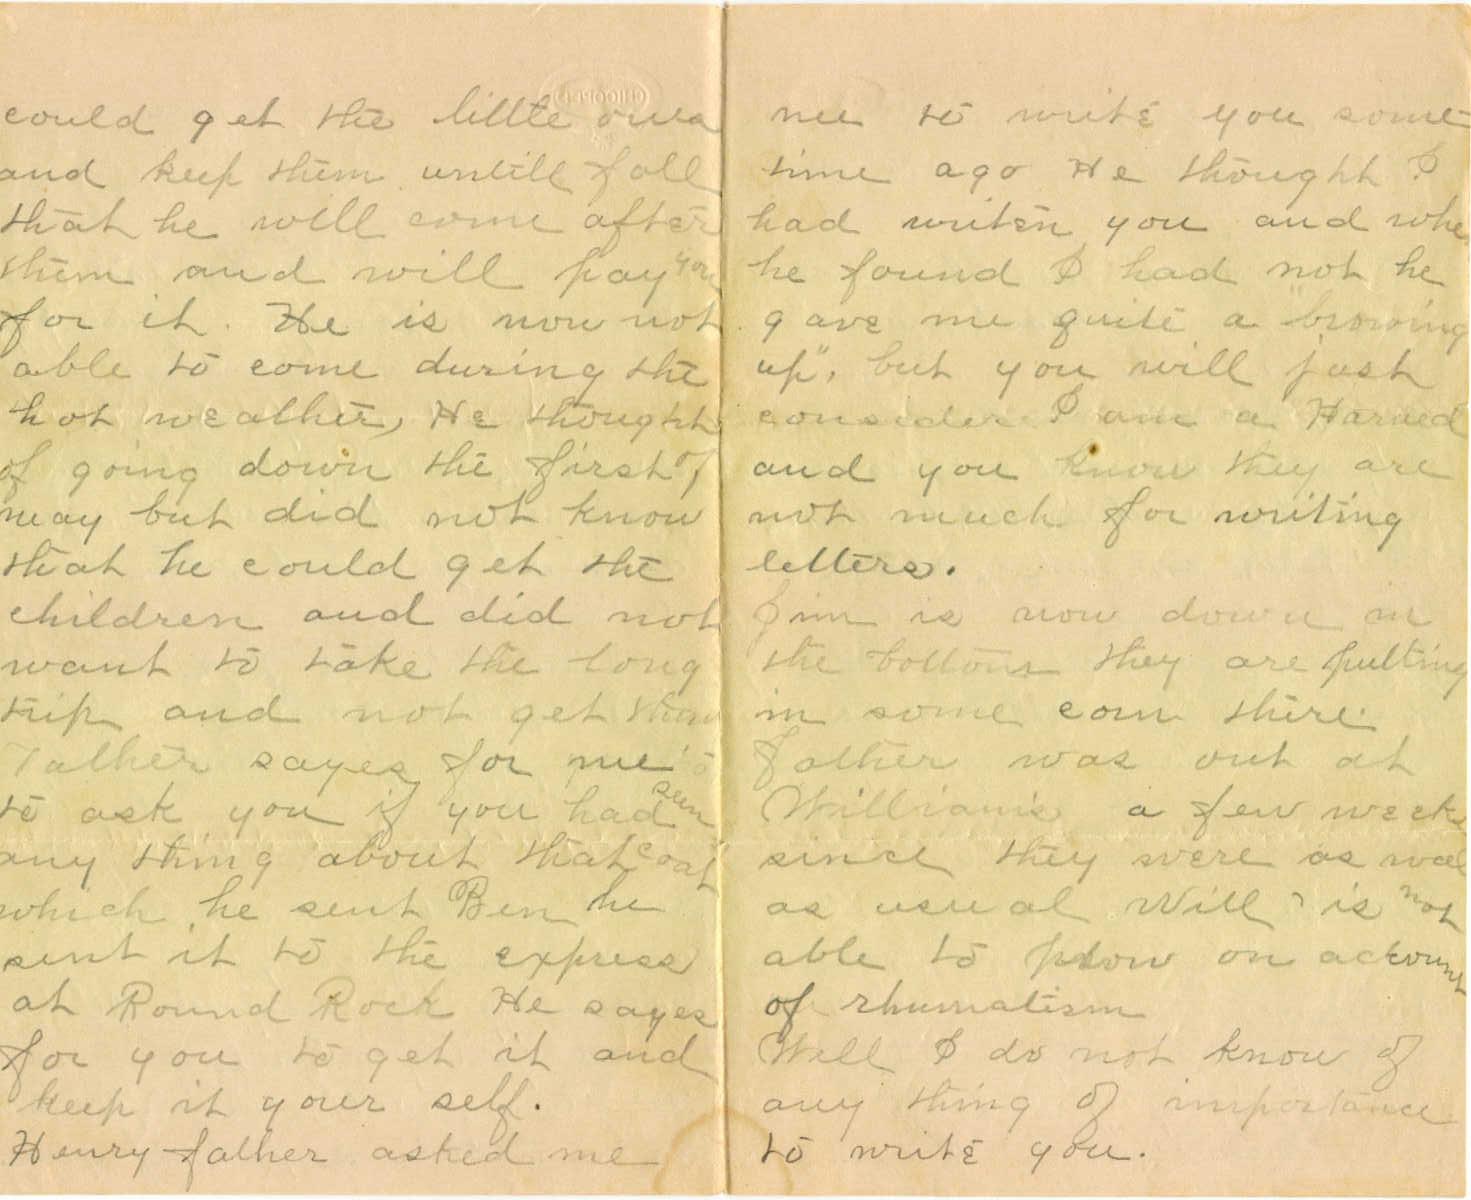 could get the little ones
and keep them untill fall
that he will come after
them and will pay you
for it. He is now not
able to come during the
hot weather, He thought
of going down the first of
may but did not know
that he could get the
children and did not
want to take the long
trip and not get them
Father sayes for me
to ask you if you had seen
any thing about that coat
which he sent Ben he
sent it to the express
at Round Rock He sayes
for you to get it and
keep it your self.
Henry father asked me
me to write you some
time ago He thought I
had writen you and whe
he found I had not he
gave me quite a "browing
up", but you will just
consider I am a Harned
and you know they are
not much for writing
letters.
Jim is now down in
the bottom they are putting
in some corn there.
father was out at
William's a few weeks
since they were as well
as usual Will is not
able to plow on account
of rhumatism
Well I do not know of
any thing of importance
to write you.